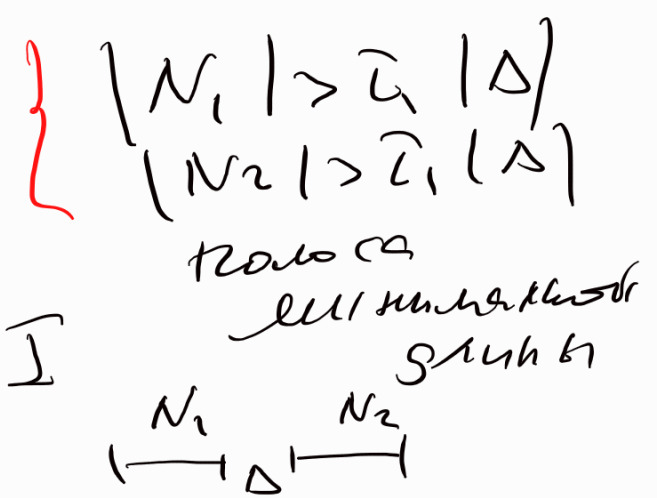 |N₁| > τ₁ |Δ|
|N₂| > τ₁ |Δ|
полоса
минимальной
длины
I
N₁ N₂
Δ